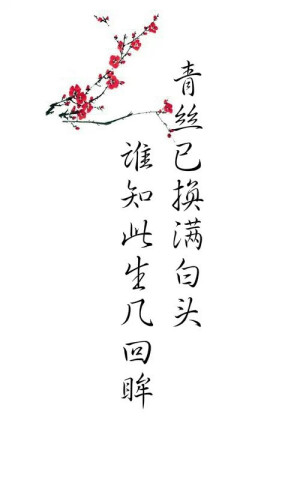 青丝已换满白头
谁知此生几回眸